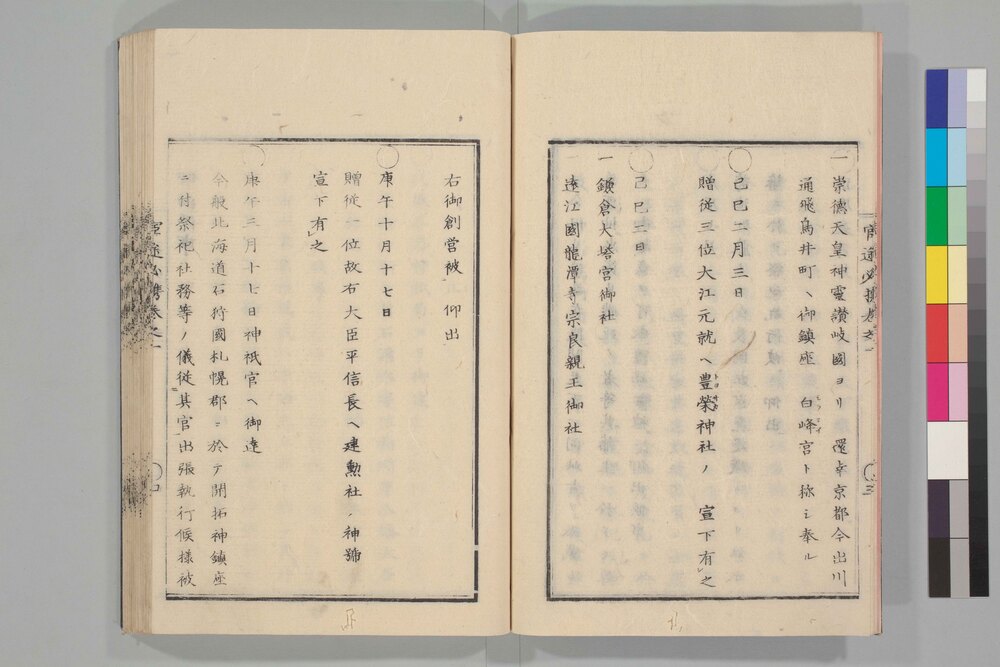 一崇德天皇神靈讃岐國ヨリ 還幸京都今出川
通飛鳥井町ヘ御鎮座 白峰宮ト称シ奉ル
○己巳二月三日
贈從三位大江元就ヘ豊榮神社ノ 宣下有之
○己巳二日
一鎌倉大塔宮御社
一遠江國龍潭寺宗良親王御社
右御創営被 仰出
○庚午十月十七日
贈從一位故右大臣平信長ヘ建勲社ノ神號
宣下有之
○庚午三月十七日神祇官ヘ御達
今般北海道石狩國札幌郡ニ於テ開拓神鎮座
ニ付祭祀社務等ノ儀従其官出張執行候様被